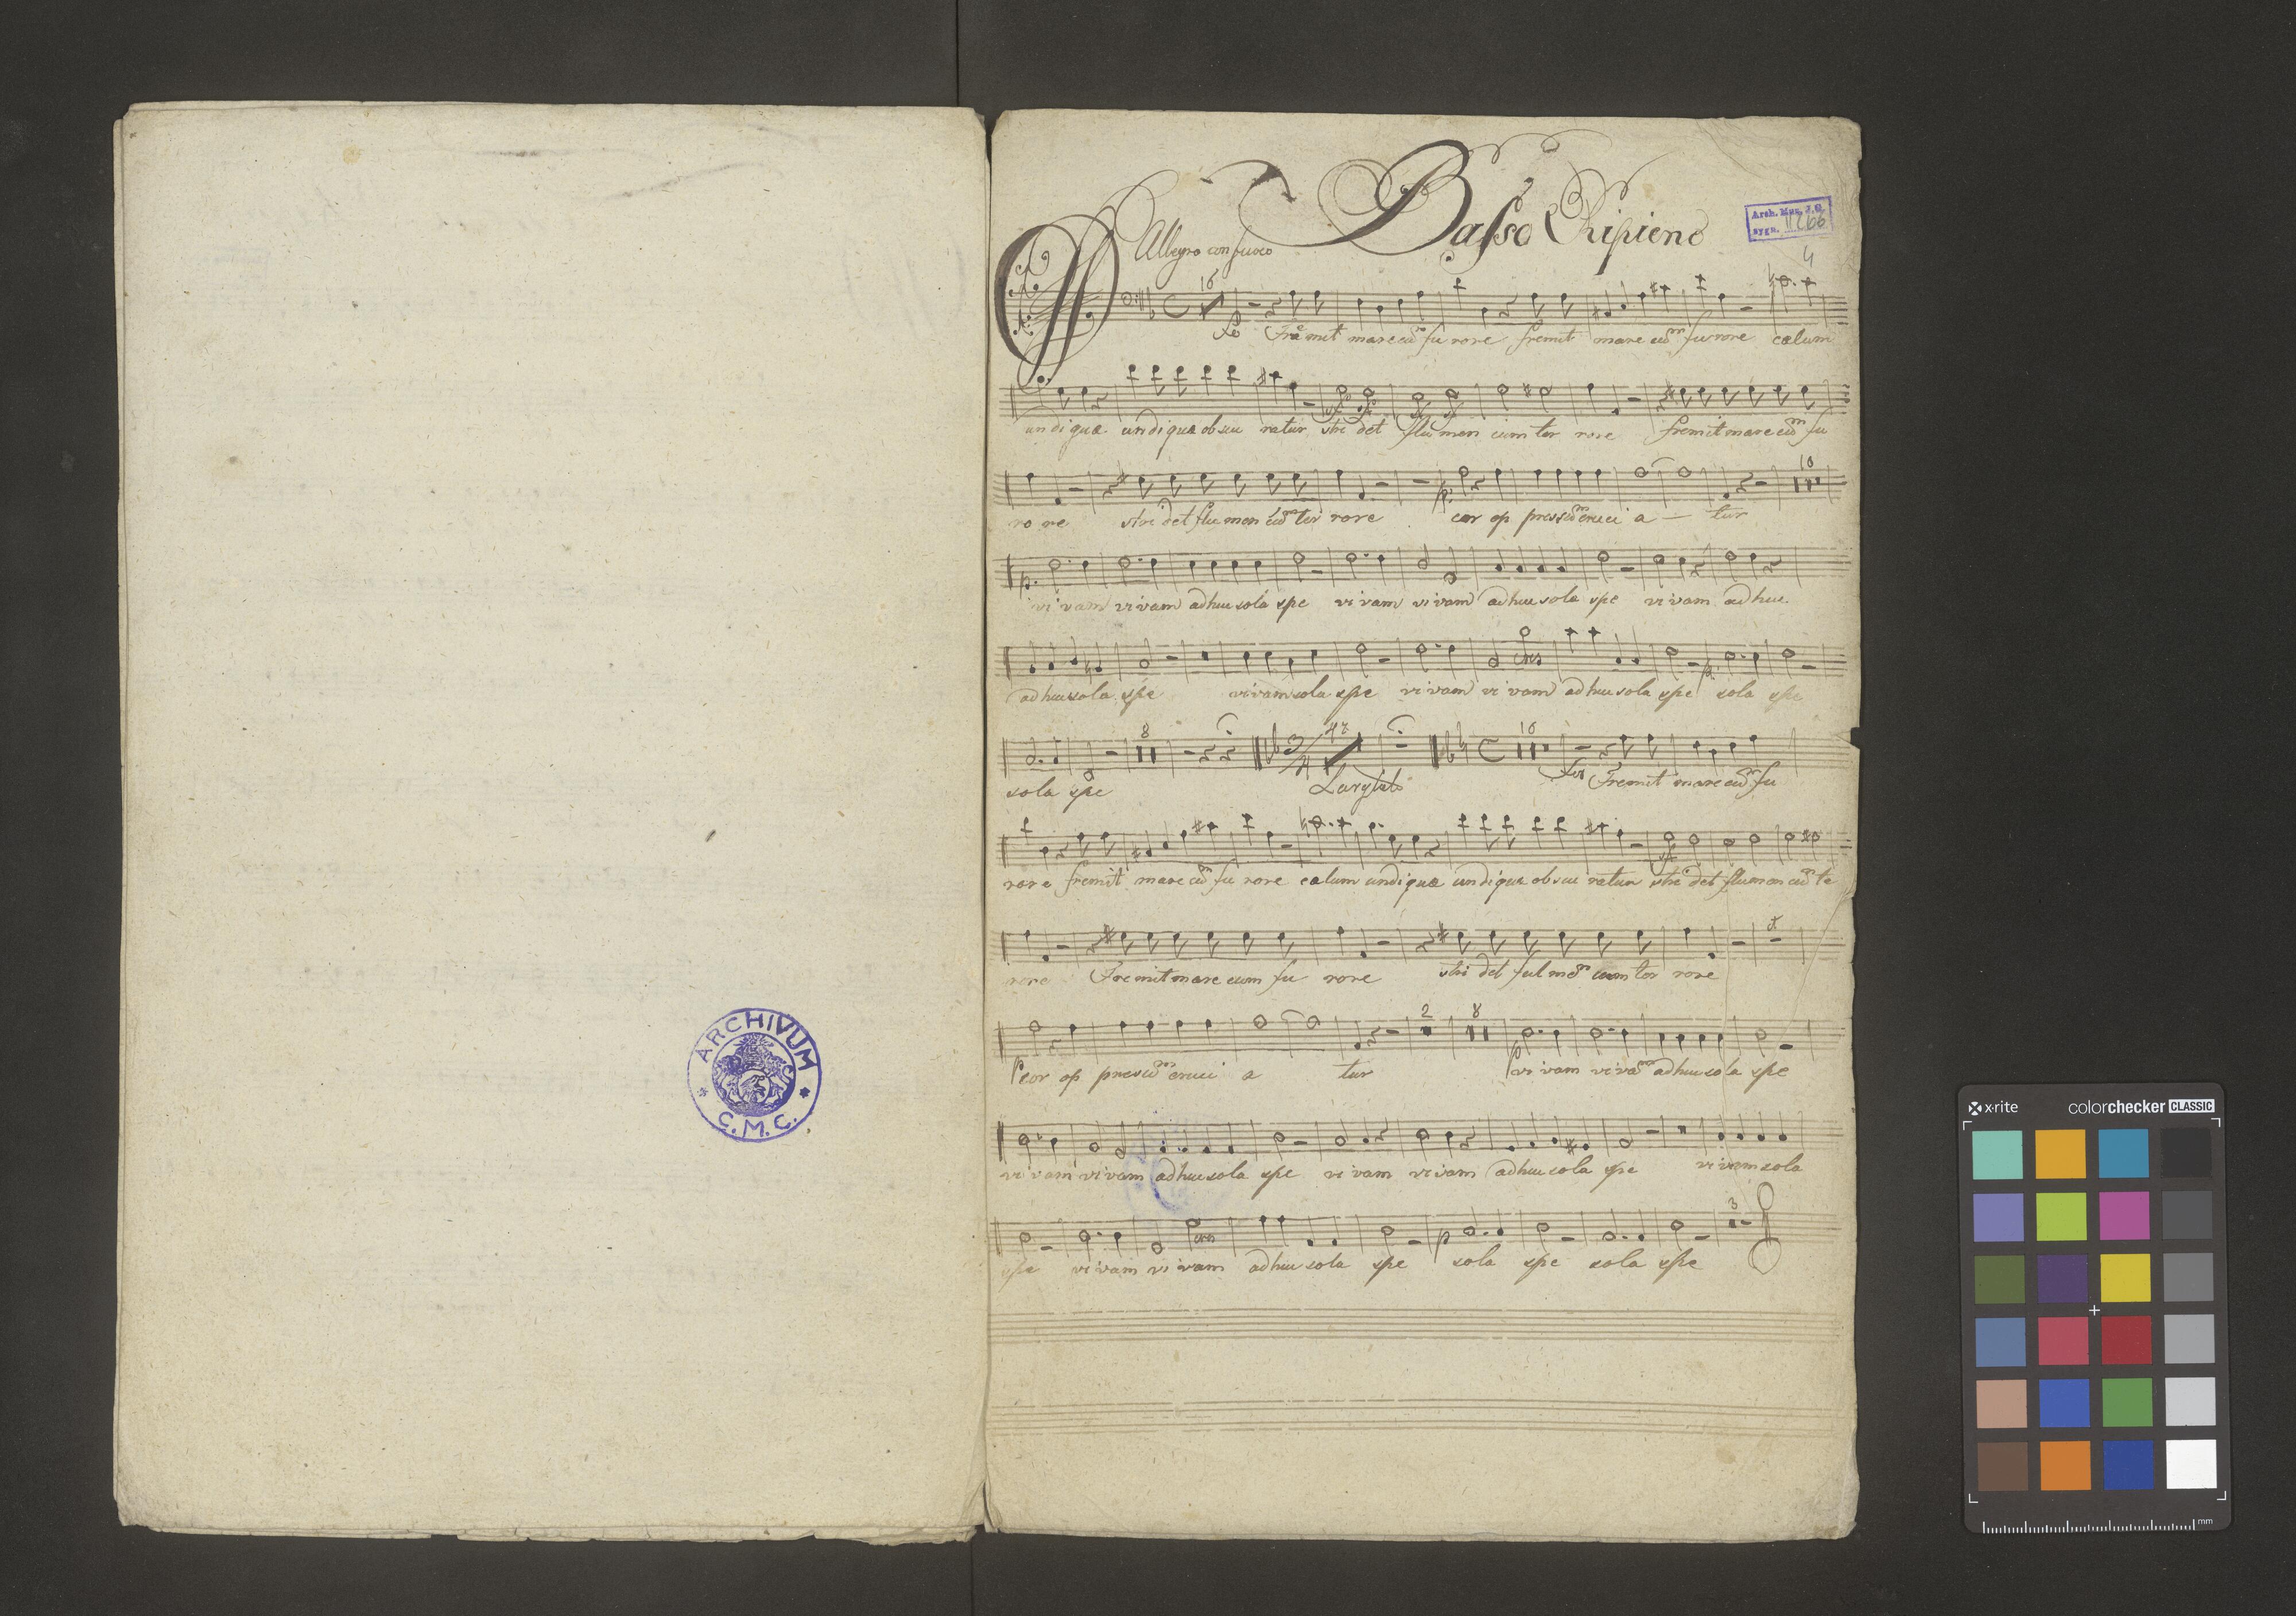 Basso Ripieno
Arch. Mus. J. G.
sygn. II 266
4
Allegro con fuoco
16
Fo Fremit mare cum fu rore fremit mare cum furore cælum
undiquæ undiquæ obscu ratur stri det flumen cum ter rore fremit mare cum fu
10
ro re stri det flu men cum ter rore cor op pressum cruci a - tur
p.
vi vam vi vam ad huc sola spe vi vam vi vam ad huc sola spe vi vam ad huc
cres
p.
ad huc sola spe vivam sola spe vi vam vi vam ad huc sola spe sola spe
8
3/4
47
C
16
sola spe Larghetto Fo Fremit mare cum fu
rore fremit mare cum fu rore cælum undiquæ undiquæ obscu ratur stri det flumen cum te
rore Fremit mare cum fu rore stri det ful men cum ter rore
2
8
cor op pressum cruci a tur vi vam vi vam ad huc sola spe
vi vam vi vam ad huc sola spe vi vam vi vam ad huc sola spe vi vam sola
cres
p
3
spe vi vam vi vam ad huc sola spe sola spe sola spe
ARCHIVUM
C. M. C.
x-rite
colorchecker CLASSIC
mm